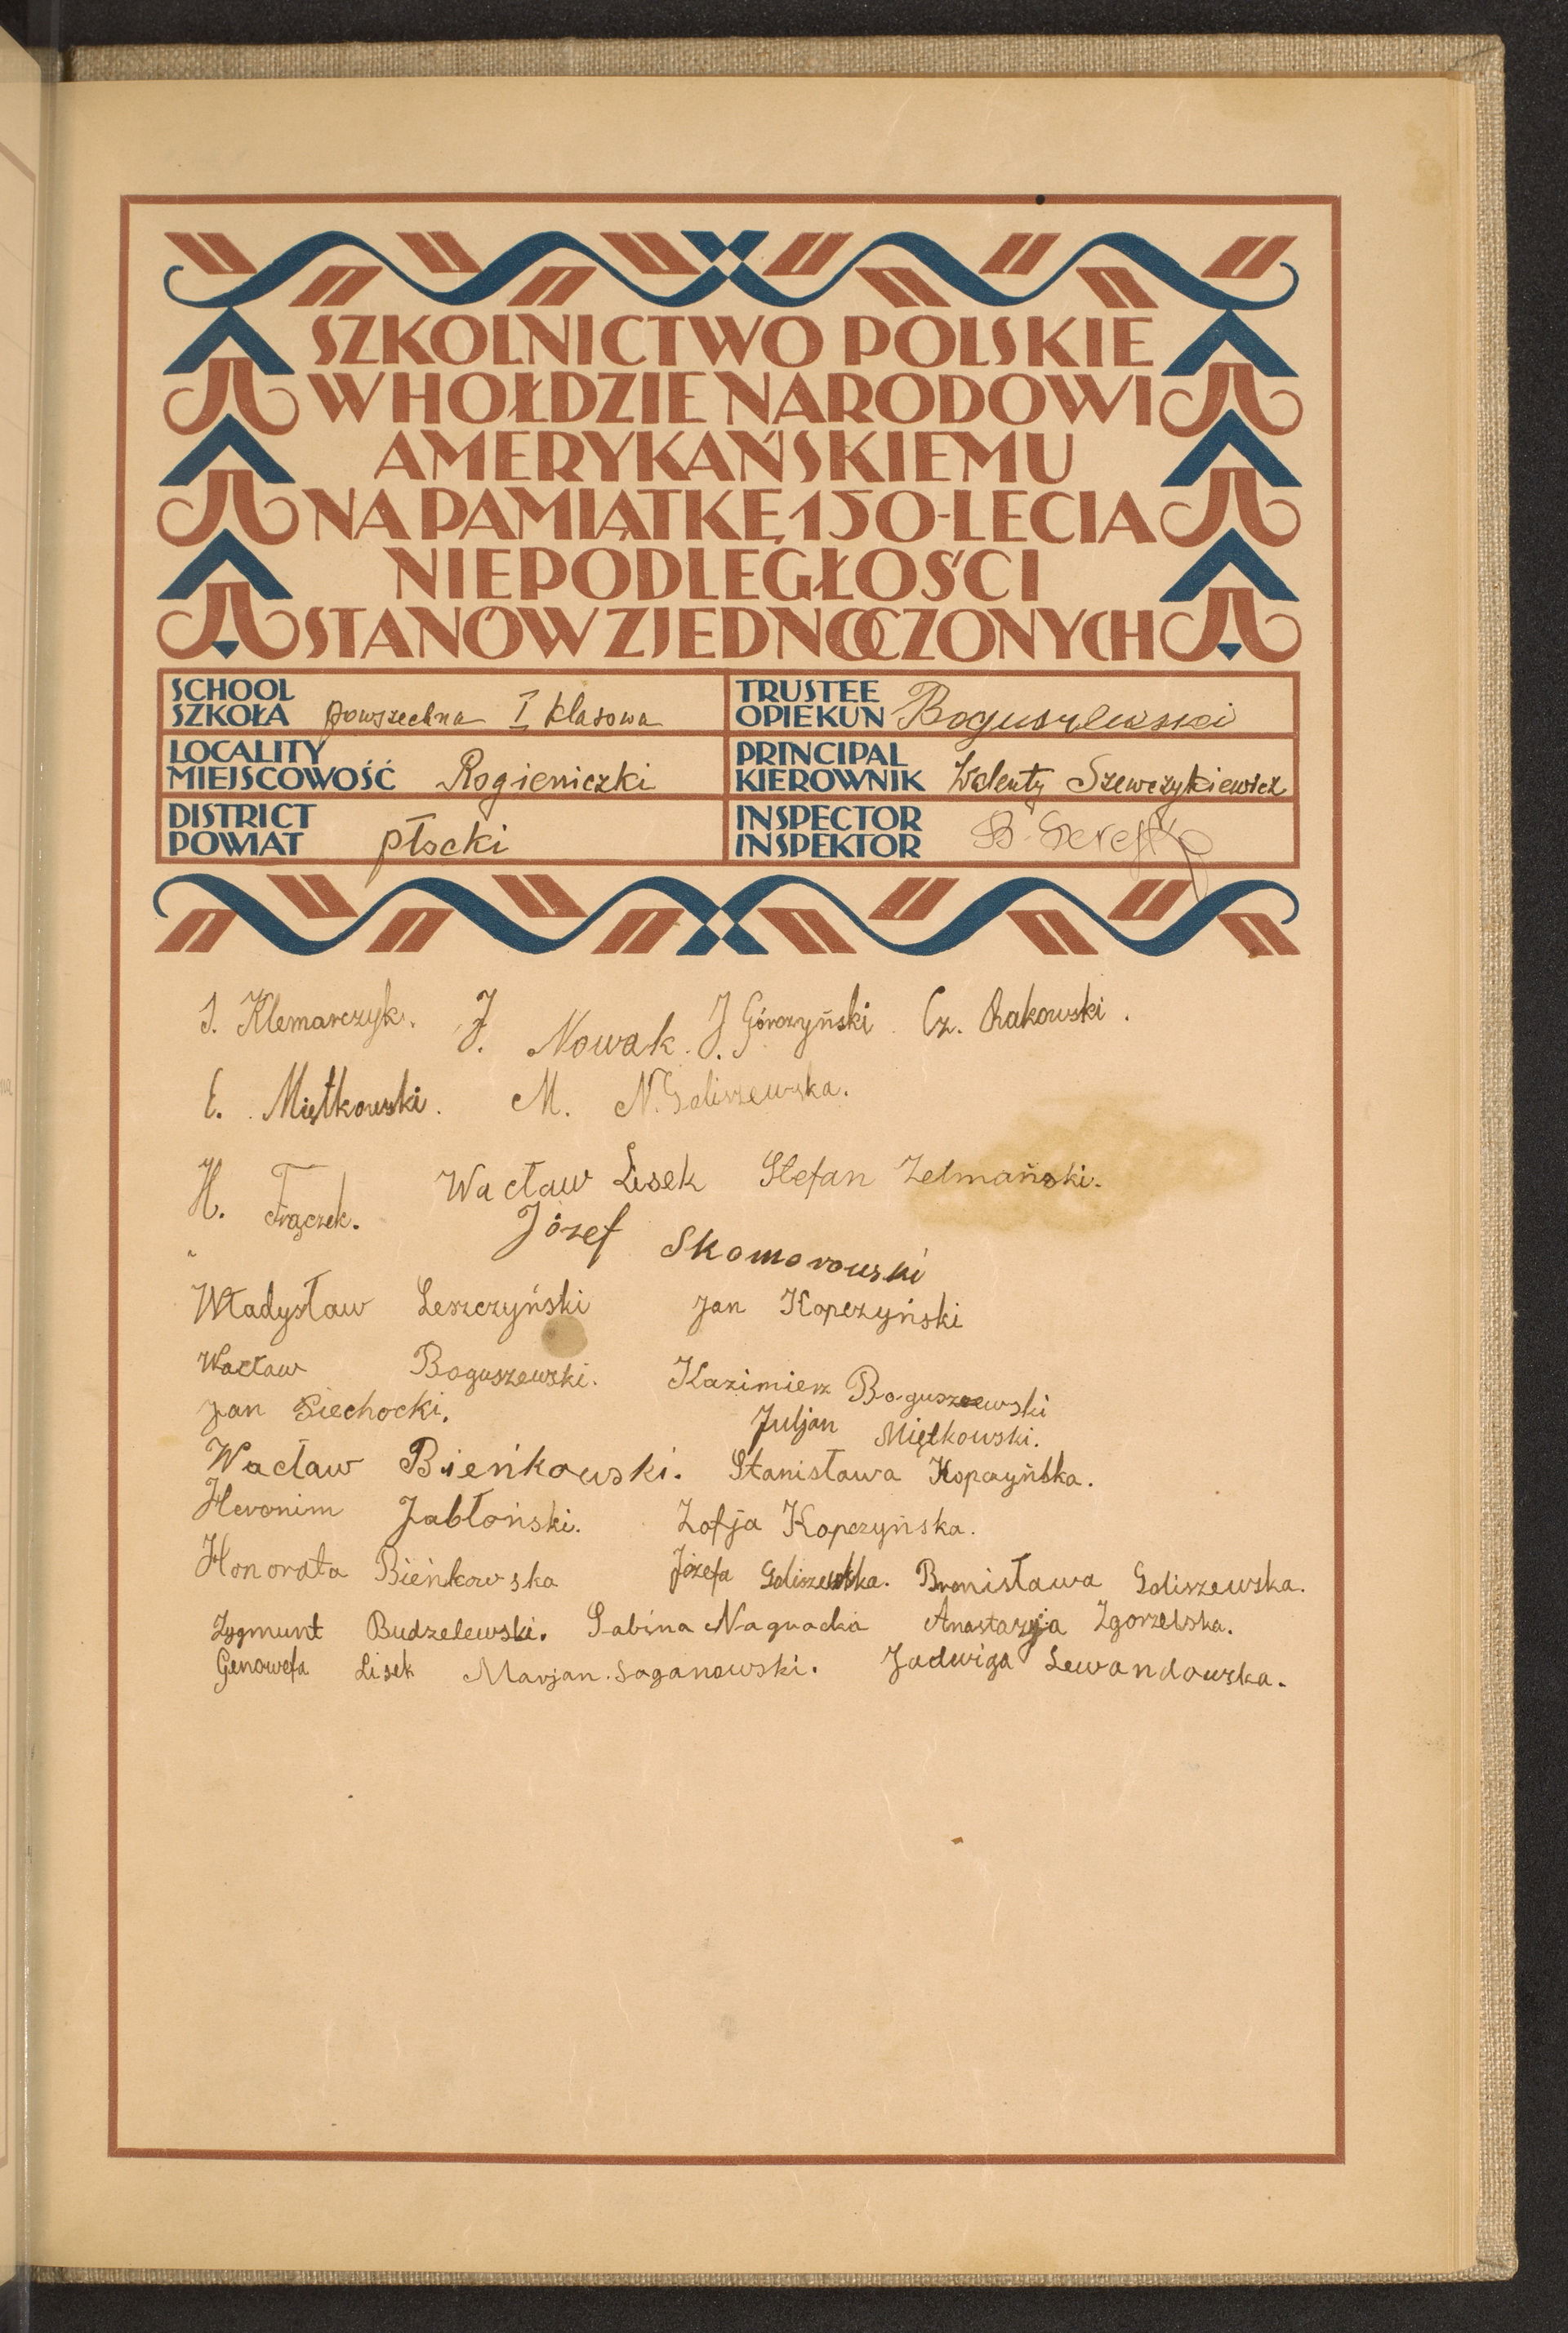 SZKOLNICTWO POLSKIE
W HOŁDZIE NARODOWI
AMERYKAŃSKIEMU
NA PAMIĄTKĘ 150-LECIA
NIEPODLEGŁOŚCI
STANÓW ZJEDNOCZONYCH
SCHOOL
SZKOŁA powszechna I klasowa
TRUSTEE
OPIEKUN Boguszewski
LOCALITY
MIEJSCOWOŚĆ Rogieniczki
PRINCIPAL
KIEROWNIK Walenty Szewczykiewicz
DISTRICT
POWIAT płocki
INSPECTOR
INSPEKTOR B.
J. Klemarczyk. J. Nowak. J. Górczyński Cz. Rakowski.
E. Miętkowski. M. N. Goliszewska.
H. Frączek. Wacław Lisek Stefan Zelmański.
Józef Skomorowski
Władysław Leszczyński Jan Kopczyński
Wacław Boguszewski. Kazimierz Boguszewski
Jan Siechocki. Juljan Miętkowski.
Wacław Bieńkowski. Stanisława Kopczyńska.
Heronim Jabłoński. Zofja Kopczyńska.
Honorata Bieńkowska Józefa Goliszewska. Bronisława Goliszewska.
Zygmunt Budzelewski. Sabina Nagnacka Anastazyja Zgorzelska.
Genowefa Lisek Marjan Soganowski. Jadwiga Lewandowska.